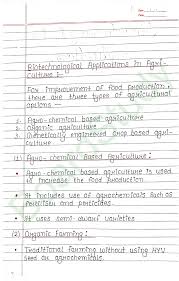 Biotechnological Applications in Agri-
culture :-
For improvement of food production,
there are three types of agricultural
options —
1. Agro-chemical based agriculture
2. Organic agriculture
3. Genetically engineered crop based agri-
culture.
(1) Agro-chemical Based Agriculture :
• Agro-chemical based agriculture is used
to increase the food production
• It includes use of agrochemicals such as
fertilisers and pesticides.
• It uses semi-dwarf varieties
(2) Organic Farming :
• Traditional farming without using HYV
seed or agrochemicals.